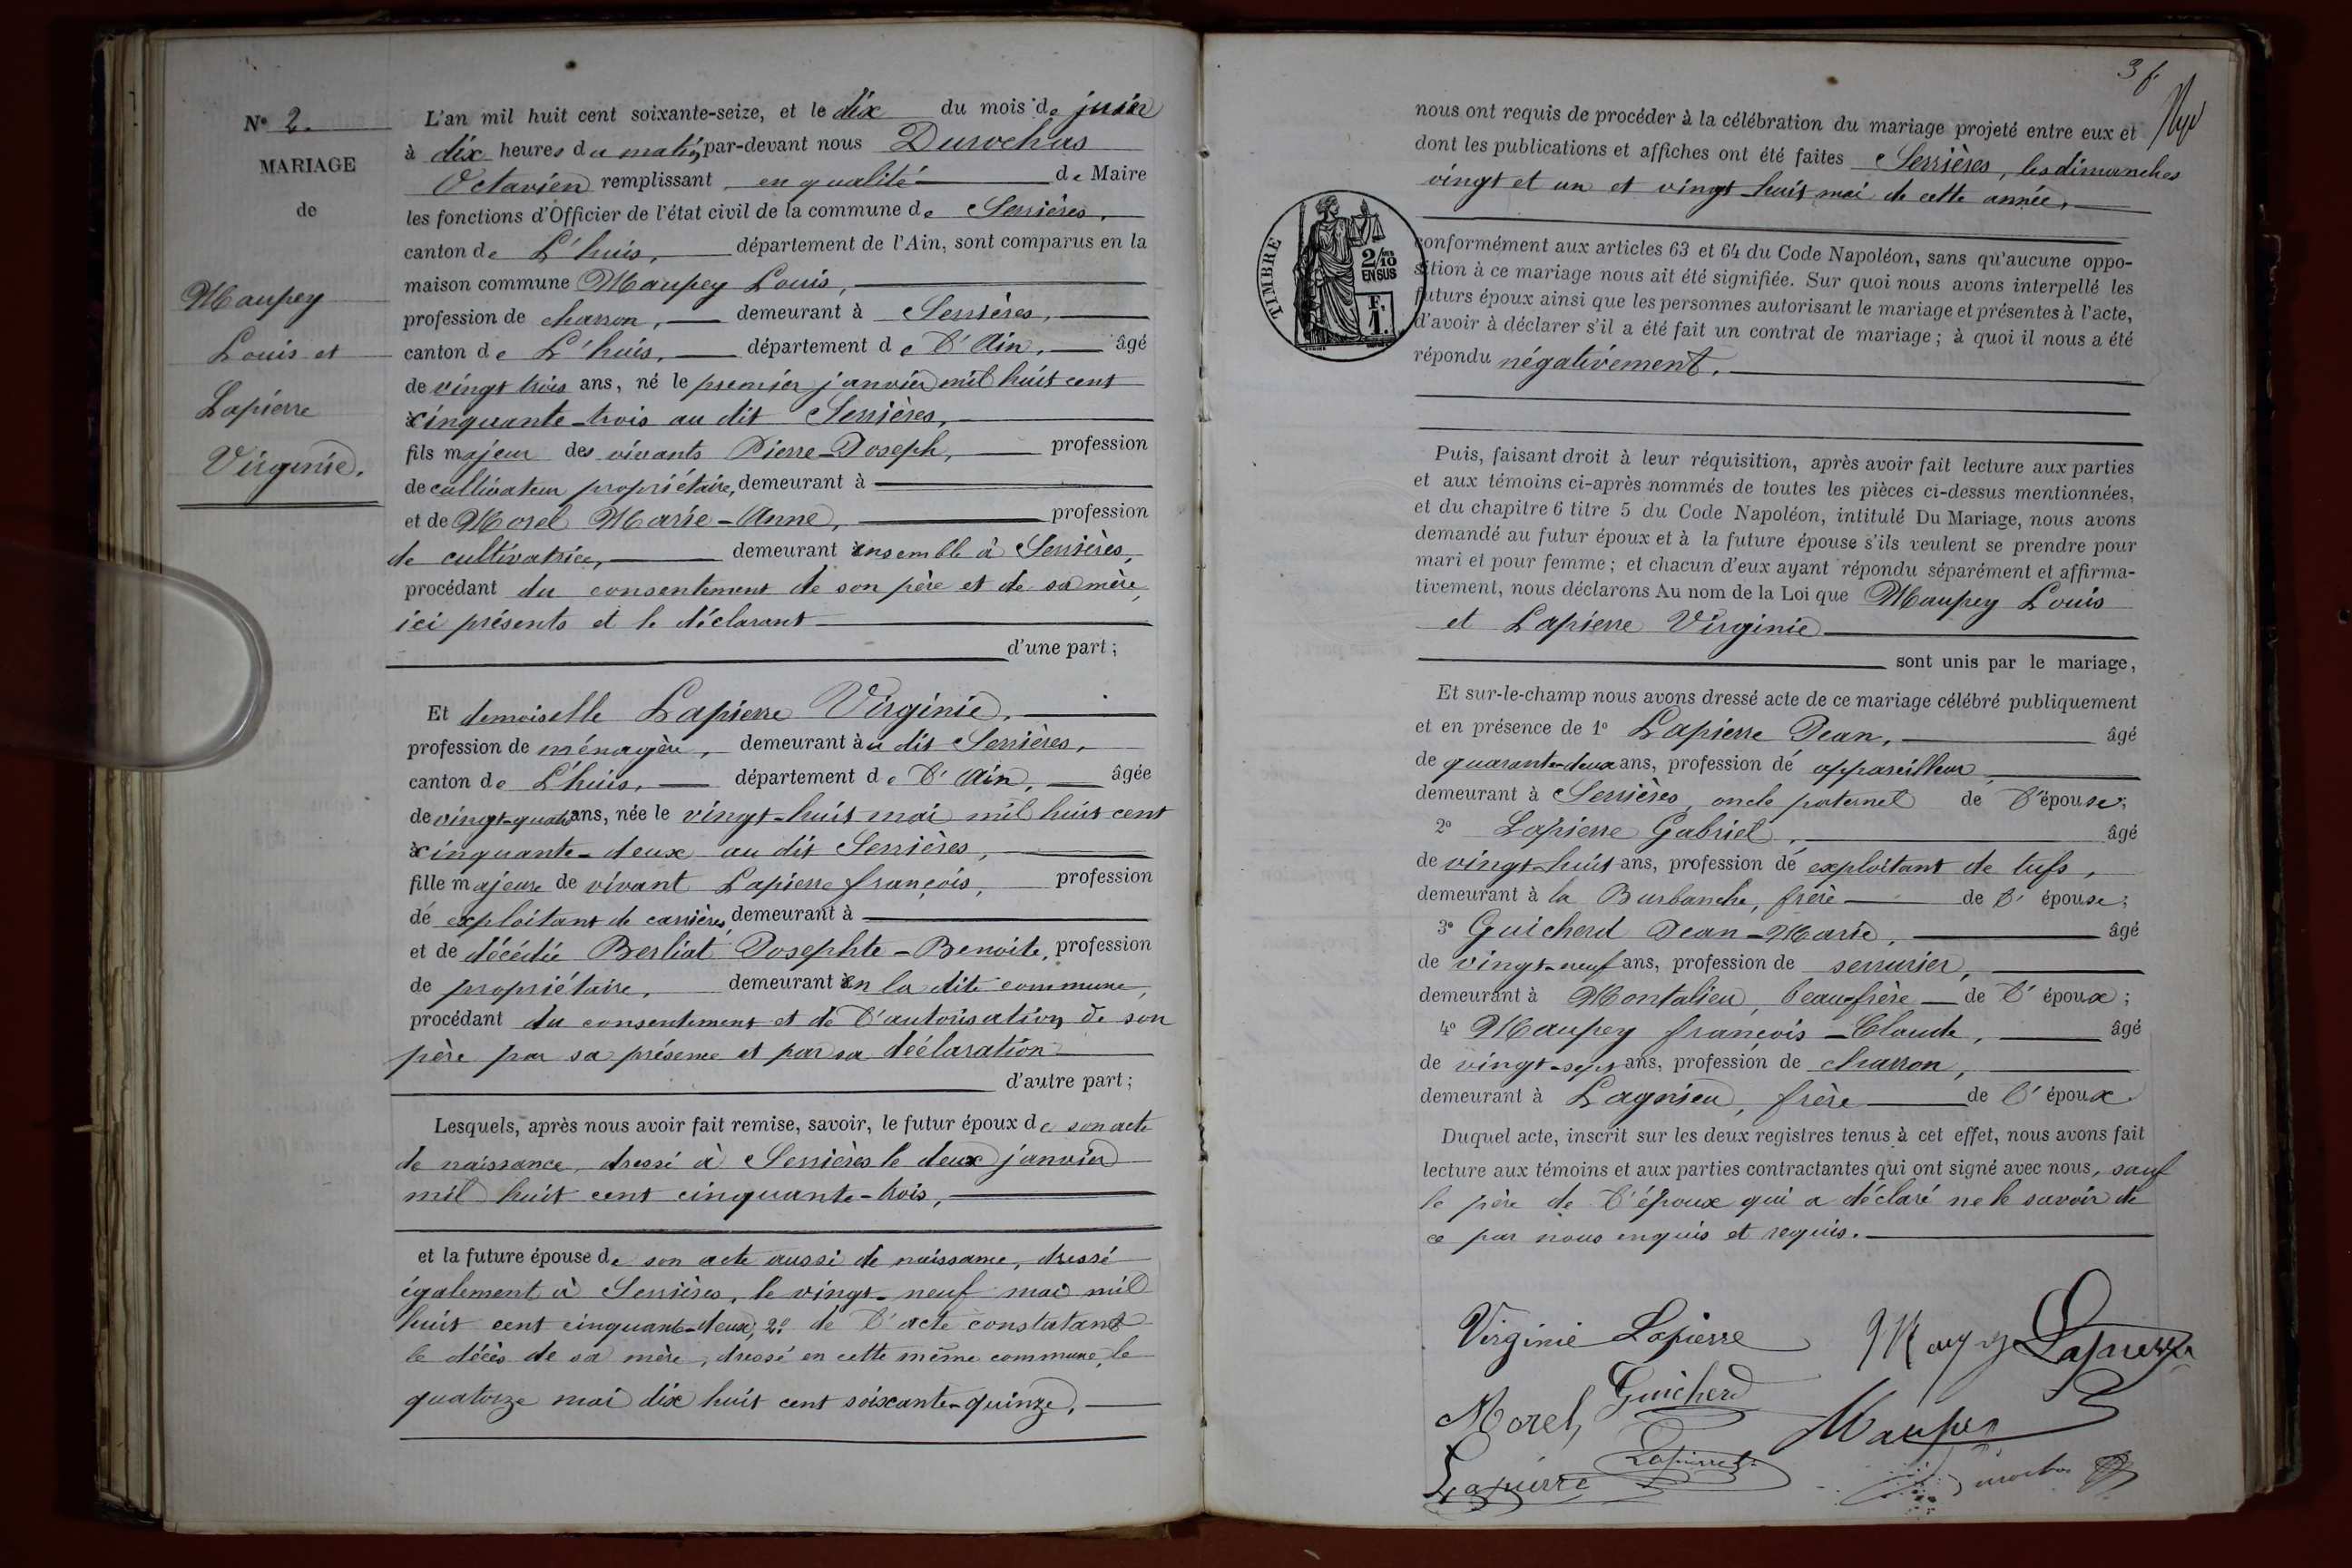 N° 2.
MARIAGE
de
Maupey
Louis et
Lapierre
Virginie.
L'an mil huit cent soixante-seize, et le dix du mois de juin
à dix heures du matin, par-devant nous Durochas
Octavien remplissant en qualité de Maire
les fonctions d'Officier de l'état civil de la commune de Serrières,
canton de L'huis, département de l'Ain, sont comparus en la
maison commune Maupey Louis,
profession de charron, demeurant à Serrières,
canton de L'huis, département de l'Ain, âgé
de vingt trois ans, né le premier janvier mil huit cent
cinquante-trois au dit Serrières,
fils majeur des vivants Pierre-Joseph, profession
de cultivateur propriétaire, demeurant à
et de Morel Marie-Anne, profession
de cultivatrice, demeurant ensemble à Serrières,
procédant du consentement de son père et de sa mère
ici présents et le déclarant
d'une part;
Et demoiselle Lapierre Virginie,
profession de ménagère, demeurant au dit Serrières,
canton de L'huis, département de l'Ain, âgée
de vingt-quatre ans, née le vingt-huit mai mil huit cent
cinquante-deux au dit Serrières,
fille majeure de vivant Lapierre françois, profession
de exploitant de carrières, demeurant à
et de décédée Berliat Josephte-Benoite, profession
de propriétaire, demeurant en la dite commune,
procédant du consentement et de l'autorisation de son
père par sa présence et par sa déclaration
d'autre part;
Lesquels, après nous avoir fait remise, savoir, le futur époux de son acte
de naissance, dressé à Serrières le deux janvier
mil huit cent cinquante-trois,
et la future épouse de son acte aussi de naissance, dressé
également à Serrières, le vingt-neuf mai mil
huit cent cinquante-deux, 2° de l'acte constatant
le décès de sa mère, dressé en cette même commune, le
quatorze mai dix huit cent soixante-quinze.
nous ont requis de procéder à la célébration du mariage projeté entre eux et
dont les publications et affiches ont été faites Serrières, les dimanches
vingt et un et vingt-huit mai de cette année,
TIMBRE
2/10
EN SUS
F.
1.
conformément aux articles 63 et 64 du Code Napoléon, sans qu'aucune oppo-
sition à ce mariage nous ait été signifiée. Sur quoi nous avons interpellé les
futurs époux ainsi que les personnes autorisant le mariage et présentes à l'acte,
d'avoir à déclarer s'il a été fait un contrat de mariage; à quoi il nous a été
répondu négativement.
Puis, faisant droit à leur réquisition, après avoir fait lecture aux parties
et aux témoins ci-après nommés de toutes les pièces ci-dessus mentionnées,
et du chapitre 6 titre 5 du Code Napoléon, intitulé Du Mariage, nous avons
demandé au futur époux et à la future épouse s'ils veulent se prendre pour
mari et pour femme; et chacun d'eux ayant répondu séparément et affirma-
tivement, nous déclarons Au nom de la Loi que Maupey Louis
et Lapierre Virginie
sont unis par le mariage,
Et sur-le-champ nous avons dressé acte de ce mariage célébré publiquement
et en présence de 1° Lapierre Jean, âgé
de quarante-deux ans, profession de appareilleur
demeurant à Serrières, oncle paternel de l'épouse;
2° Lapierre Gabriel, âgé
de vingt-huit ans, profession de exploitant de tufs,
demeurant à la Burbanche, frère de l'épouse;
3° Guicherd Jean-Marie, âgé
de vingt-neuf ans, profession de serrurier,
demeurant à Montalieu, beau-frère de l'époux;
4° Maupey françois-Claude, âgé
de vingt-sept ans, profession de charron,
demeurant à Lagnieu, frère de l'époux.
Duquel acte, inscrit sur les deux registres tenus à cet effet, nous avons fait
lecture aux témoins et aux parties contractantes qui ont signé avec nous, sauf
le père de l'époux qui a déclaré ne le savoir de
ce par nous enquis et requis.
Virginie Lapierre Maupey Lapierre
Morel Guicherd Maupey
Lapierre Lapierre